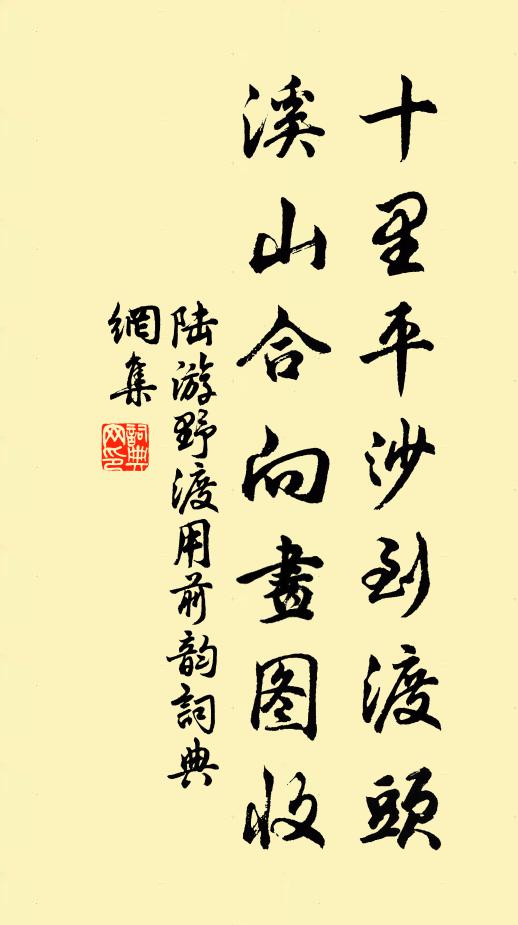 十里平沙到渡頭
溪山合向畫图收
陆游野渡用前韵詞典
網集
詞典
网印